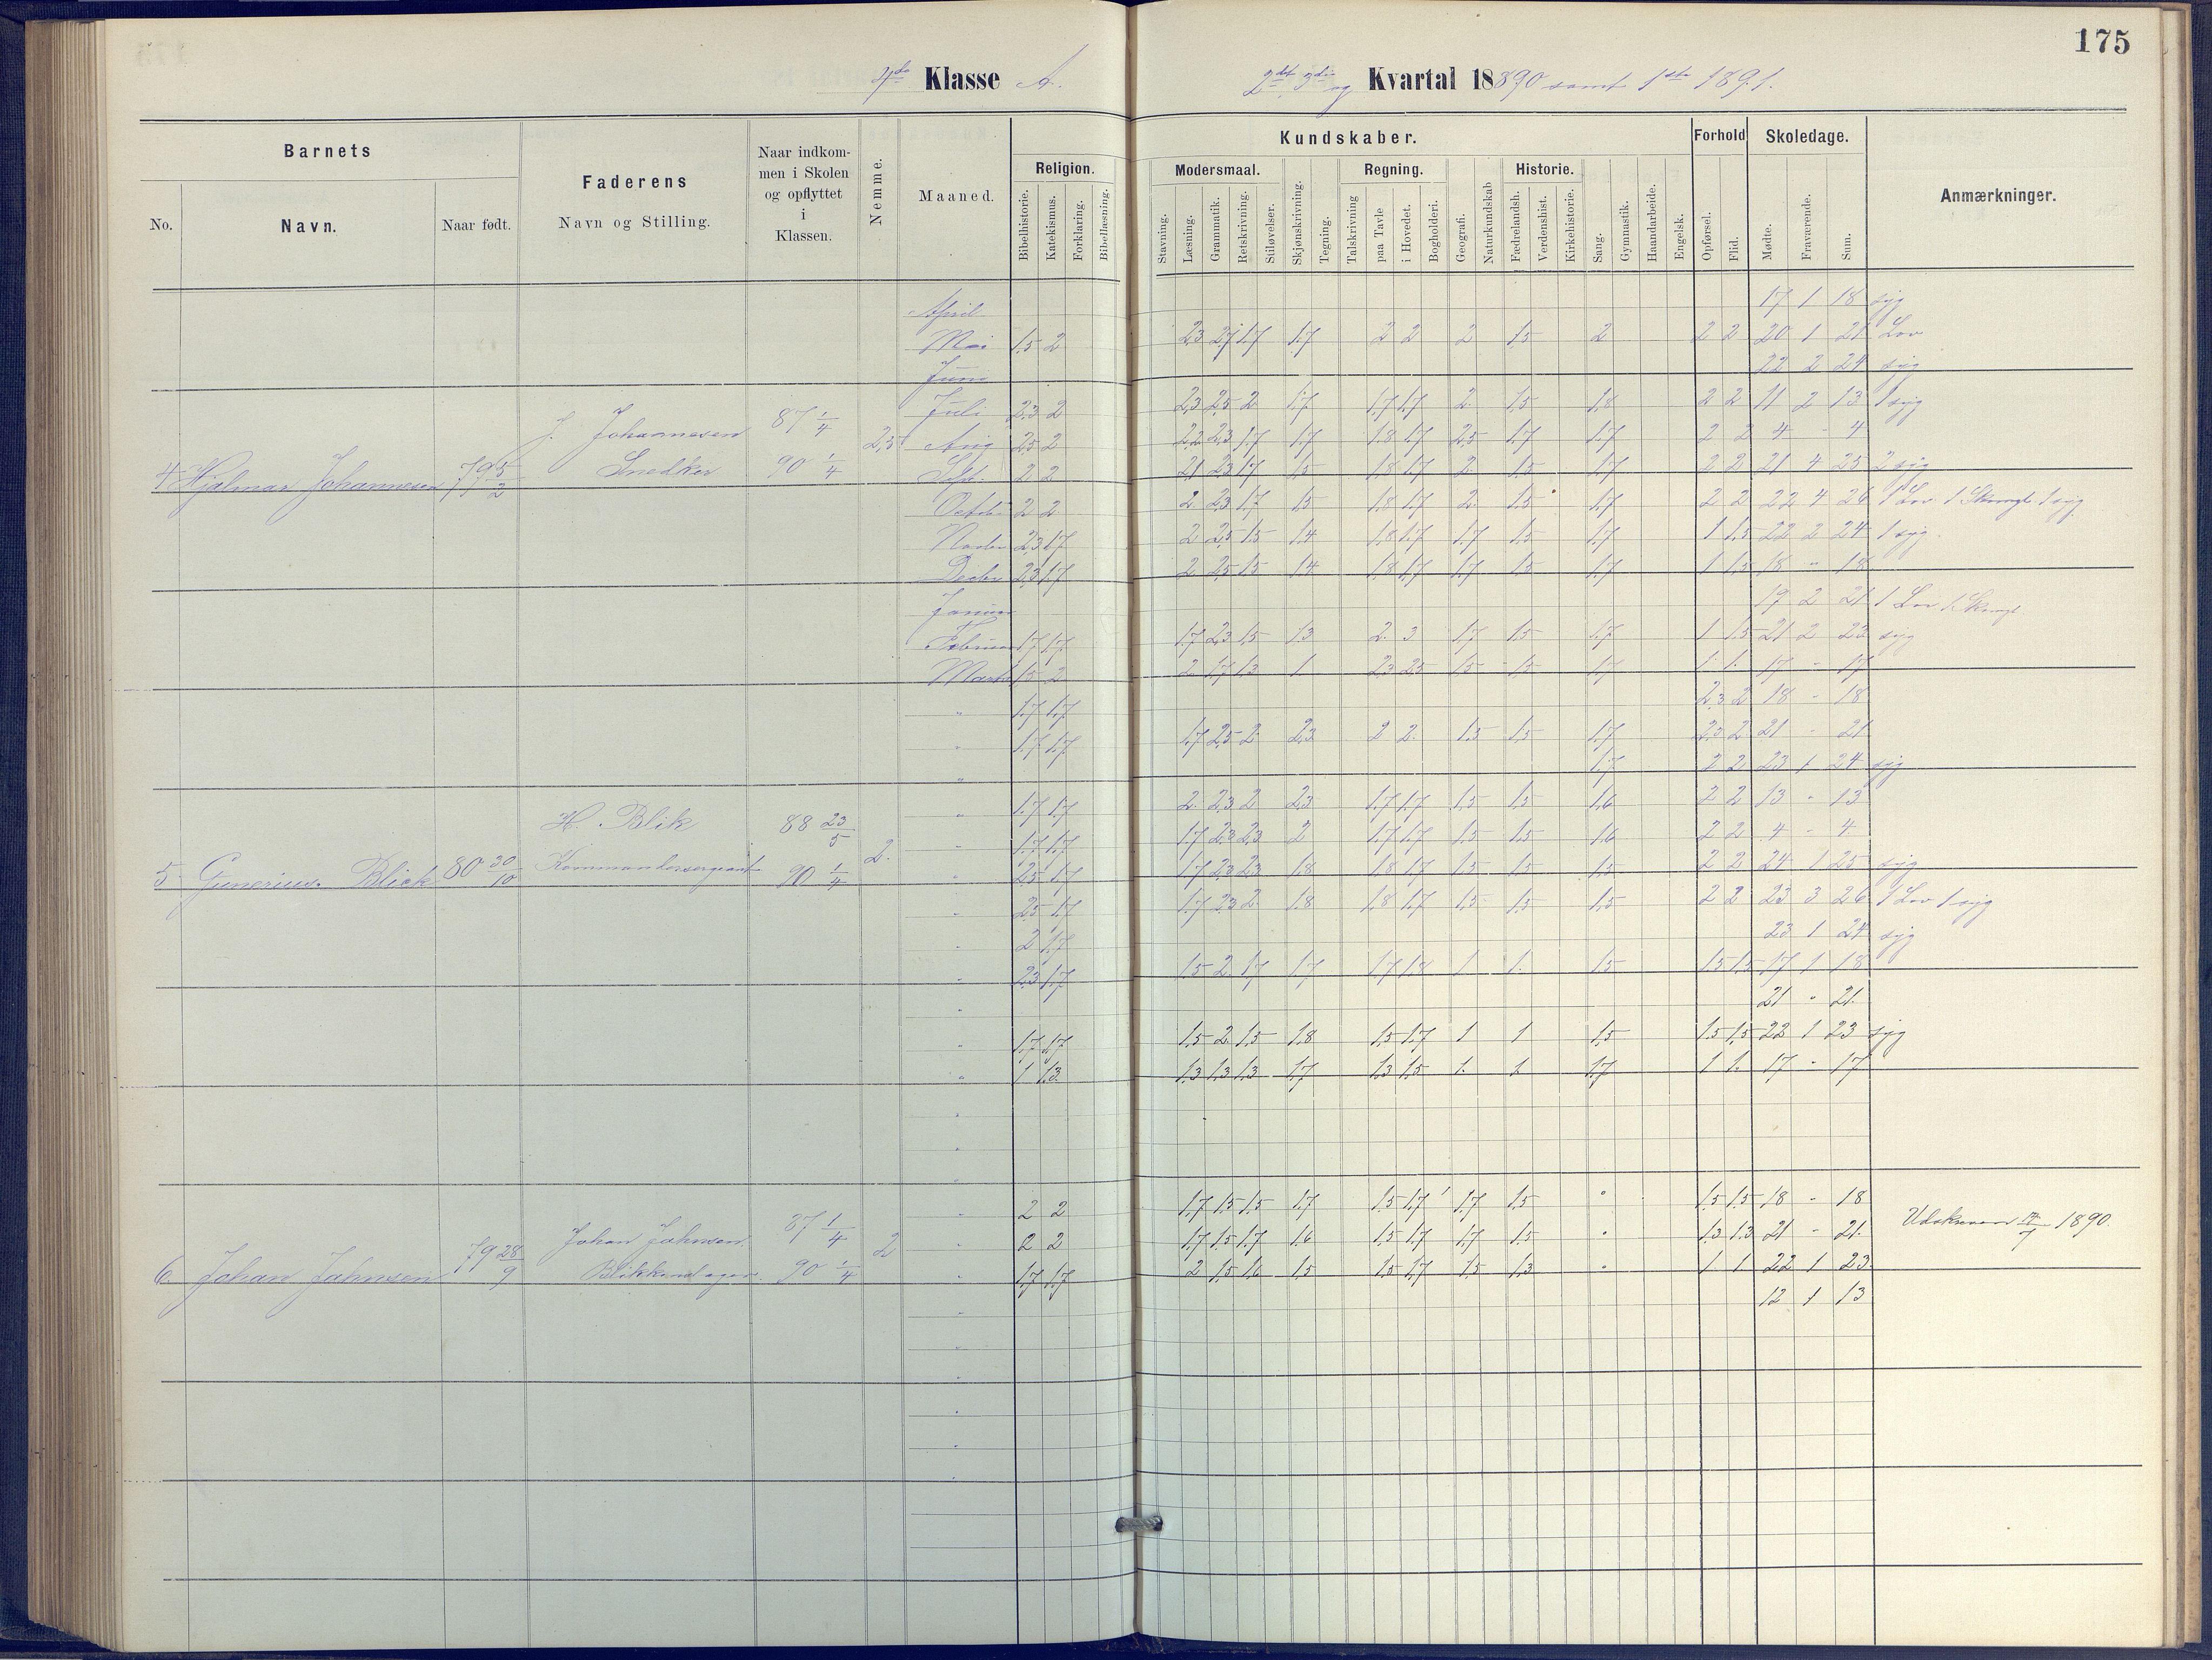 175
4de Klasse A.
2det 3die og Kvartal 18890 samt 1ste 1891.
Barnets
No.
Navn.
Naar født.
Faderens
Navn og Stilling.
Naar indkom-
men i Skolen
og opflyttet
i
Klassen.
Nemme.
Maaned.
Kundskaber.
Religion.
Bibelhistorie.
Katekismus.
Forklaring.
Bibellæsning.
Modersmaal.
Stavning.
Læsning.
Grammatik.
Retskrivning.
Stiløvelser.
Skjønskrivning.
Tegning.
Regning.
Talskrivning
paa Tavle
i Hovedet.
Bogholderi.
Geografi.
Naturkundskab
Historie.
Fædrelandsh.
Verdenshist.
Kirkehistorie.
Sang.
Gymnastik.
Haandarbeide.
Engelsk.
Forhold
Opførsel.
Flid.
Skoledage.
Mødte.
Fraværende.
Sum.
Anmærkninger.
4 Hjalmar Johannesen 79 5/2 J. Johannesen Snedker 87 1/4 90 1/4 2,5
April 17 1 18 syg
Mai 1,5 2 2,3 2,7 1,7 1,7 2 2 2 1,5 2 2 2 20 1 21 Lov
Juni 22 2 24 syg
Juli 2,3 2 2,3 2,5 2 1,7 1,7 1,7 2 1,5 1,8 2 2 11 2 13 1 syg
Aug 2,5 2 2,2 2,3 1,7 1,7 1,8 1,7 2,5 1,7 1,7 2 2 4 - 4
Sept. 2 2 2,1 2,3 1,7 1,5 1,8 1,7 2 1,5 1,7 2 2 21 4 25 2 syg
Octob. 2 2 2 2,3 1,7 1,5 1,8 1,7 2 1,5 1,7 2 2 22 4 26 1 Lov 1 syg
Novbr 2,3 1,7 2 2,5 1,5 1,4 1,8 1,7 1,7 1,5 1,7 1 1,5 22 2 24 1 syg
Decbr 2,3 1,7 2 2,5 1,5 1,4 1,8 1,7 1,7 1,5 1,7 1 1,5 18 - 18
Januar 19 2 21 1 Lov
Februar 1,7 1,7 1,7 2,3 1,5 1,3 2 3 1,7 1,5 1,7 1 1,5 21 2 23 syg
Marts 1,5 2 2 1,7 1,3 1 2,3 2,5 1,5 1,5 1,7 1 1 17 - 17
5 Gunerius Blick 80 30/10 H. Blik Kommandersergeant 88 23/5 90 1/4 2.
" 1,7 1,7 2,3 2 18 - 18
" 1,7 1,7 1,7 2,5 2 2,3 2 2 1,5 1,5 1,7 2,3 2 21 - 21
" 1,7 2 2 23 1 24 syg
" 1,7 1,7 2 2,3 2 2,3 1,7 1,7 1,5 1,5 1,6 2 2 13 - 13
" 1,7 1,7 1,7 2,3 2,3 2 1,7 1,7 1,5 1,5 1,6 2 2 4 - 4
" 2,5 1,7 1,7 2,3 2,3 1,8 1,8 1,7 1,5 1,5 1,5 2 2 24 1 25 syg
" 2,5 1,7 1,7 2,3 2 1,8 1,8 1,7 1,5 1,5 1,5 2 2 23 3 26 1 Lov 1 syg
" 2 1,7 23 1 24 syg
" 2,3 1,7 1,5 2 1,7 1,7 1,7 1,8 1 1 1,5 1,5 1,5 17 1 18
" 21 " 21.
" 1,7 1,7 1,5 2 1,5 1,8 1,5 1,7 1 1 1,5 1,5 1,5 22 1 23 syg
" 1 1,3 1,3 1,3 1,3 1,7 1,3 1,5 1. 1 1,7 1 1. 17 - 17
6. Johan Jahnsen 79 28/9 Johan Jahnsen. Blikkenslager. 87 1/4 90 1/4 2
" 2 2 1,7 1,5 1,5 1,7 1,5 1,7 1,7 1,5 " 1,5 1,5 18 - 18
" 2 2 1,7 1,5 1,7 1,6 1,5 1,7 1,7 1,5 " 1,3 1,3 21 - 21.
" 1,7 1,7 2 1,5 1,6 1,5 1,5 1,7 1,5 1,3 " 1 1 22 1 23.
" 12 1 13
1890.